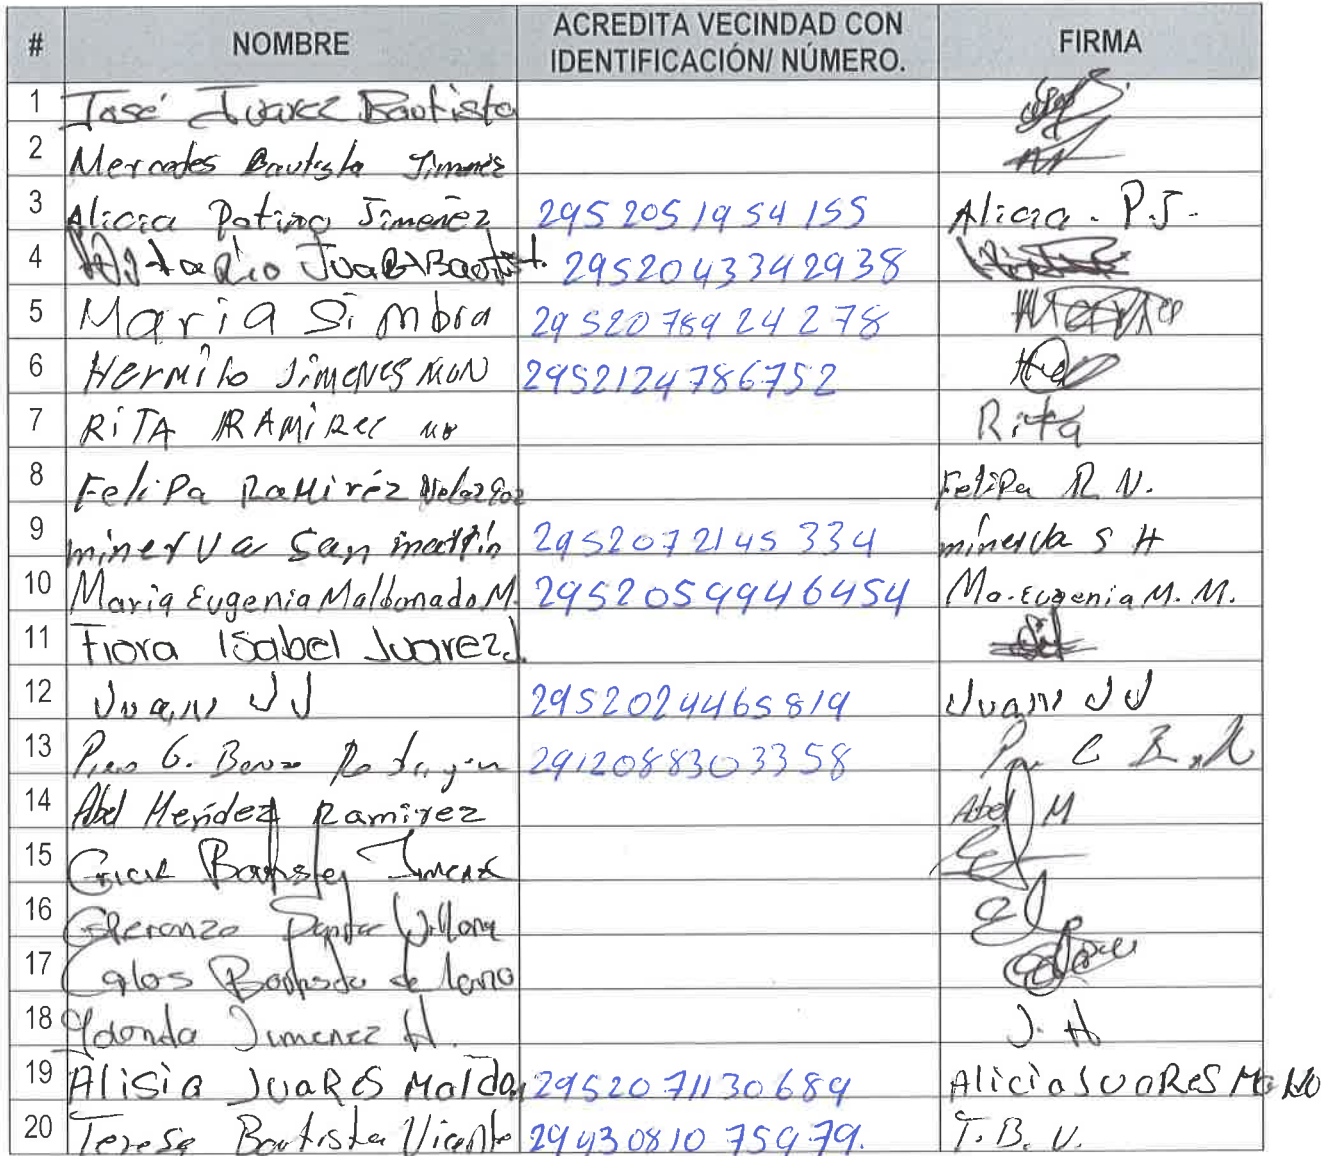 # NOMBRE ACREDITA VECINDAD CON IDENTIFICACIÓN/ NÚMERO. FIRMA
1 José Juarez Bautista
2 Mercedes Bautista Jimenez
3 Alicia Patino Jimenez 2952051954155 Alicia. P.J.
4 2952043342938
5 Maria Simbra 2952078924278
6 Hermilo Jimenes 2952124786752
7 RiTA RAMiREz Rita
8 Felipa RaMiréz FeliPa R V.
9 minerva San martin 2952072145334 minerva S H
10 Maria Eugenia Maldonado M. 2952059946454 Ma. Eugenia M. M.
11 Fiora Isabel Juarez J.
12 Juan J J 2952024465819 Juan J J
13 G. 2912088303358
14 Abel Mendez Ramirez Abel M
15 Bautista Jimenez
16 Esperanza
17 Carlos Bautista de
18 Yolonda Jimenez H. J. H
19 Alisia JuaRes Maldo 2952071130689 Alicia JuaRes
20 Teresa Bautista Vicente 2943081075979. T. B. V.